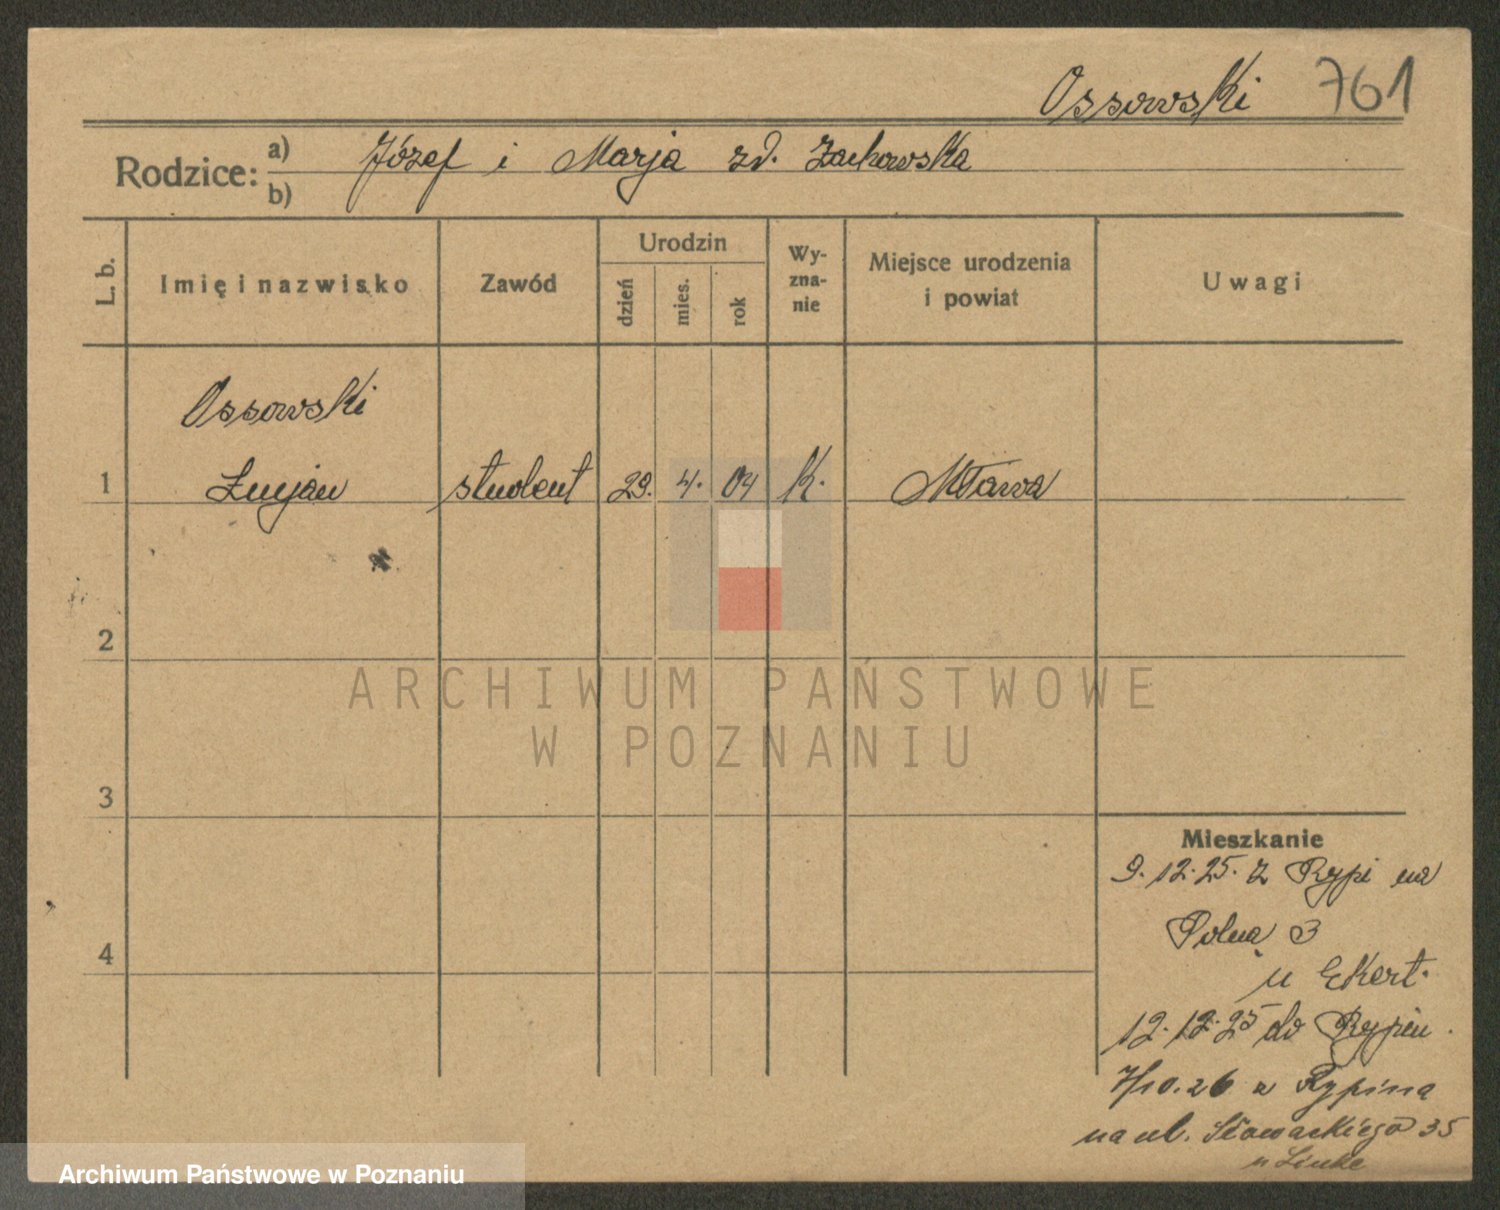 Ossowski 761
Rodzice: a) Józef i Marja zd. Zachowska
b)
L. b.
Imię i nazwisko
Zawód
Urodzin
dzień
mies.
rok
Wy-
zna-
nie
Miejsce urodzenia
i powiat
Uwagi
Ossowski
1 Lucjan student 29. 4. 04 K. Mława
2
ARCHIWUM PAŃSTWOWE
W POZNANIU
3
Mieszkanie
9.12.25. z Rypi na
Polną 3
4
u Ekert.
12.12.25 do Rypin.
7/10.26 z Rypina
na ul. Słowackiego 35
u Linke
Archiwum Państwowe w Poznaniu